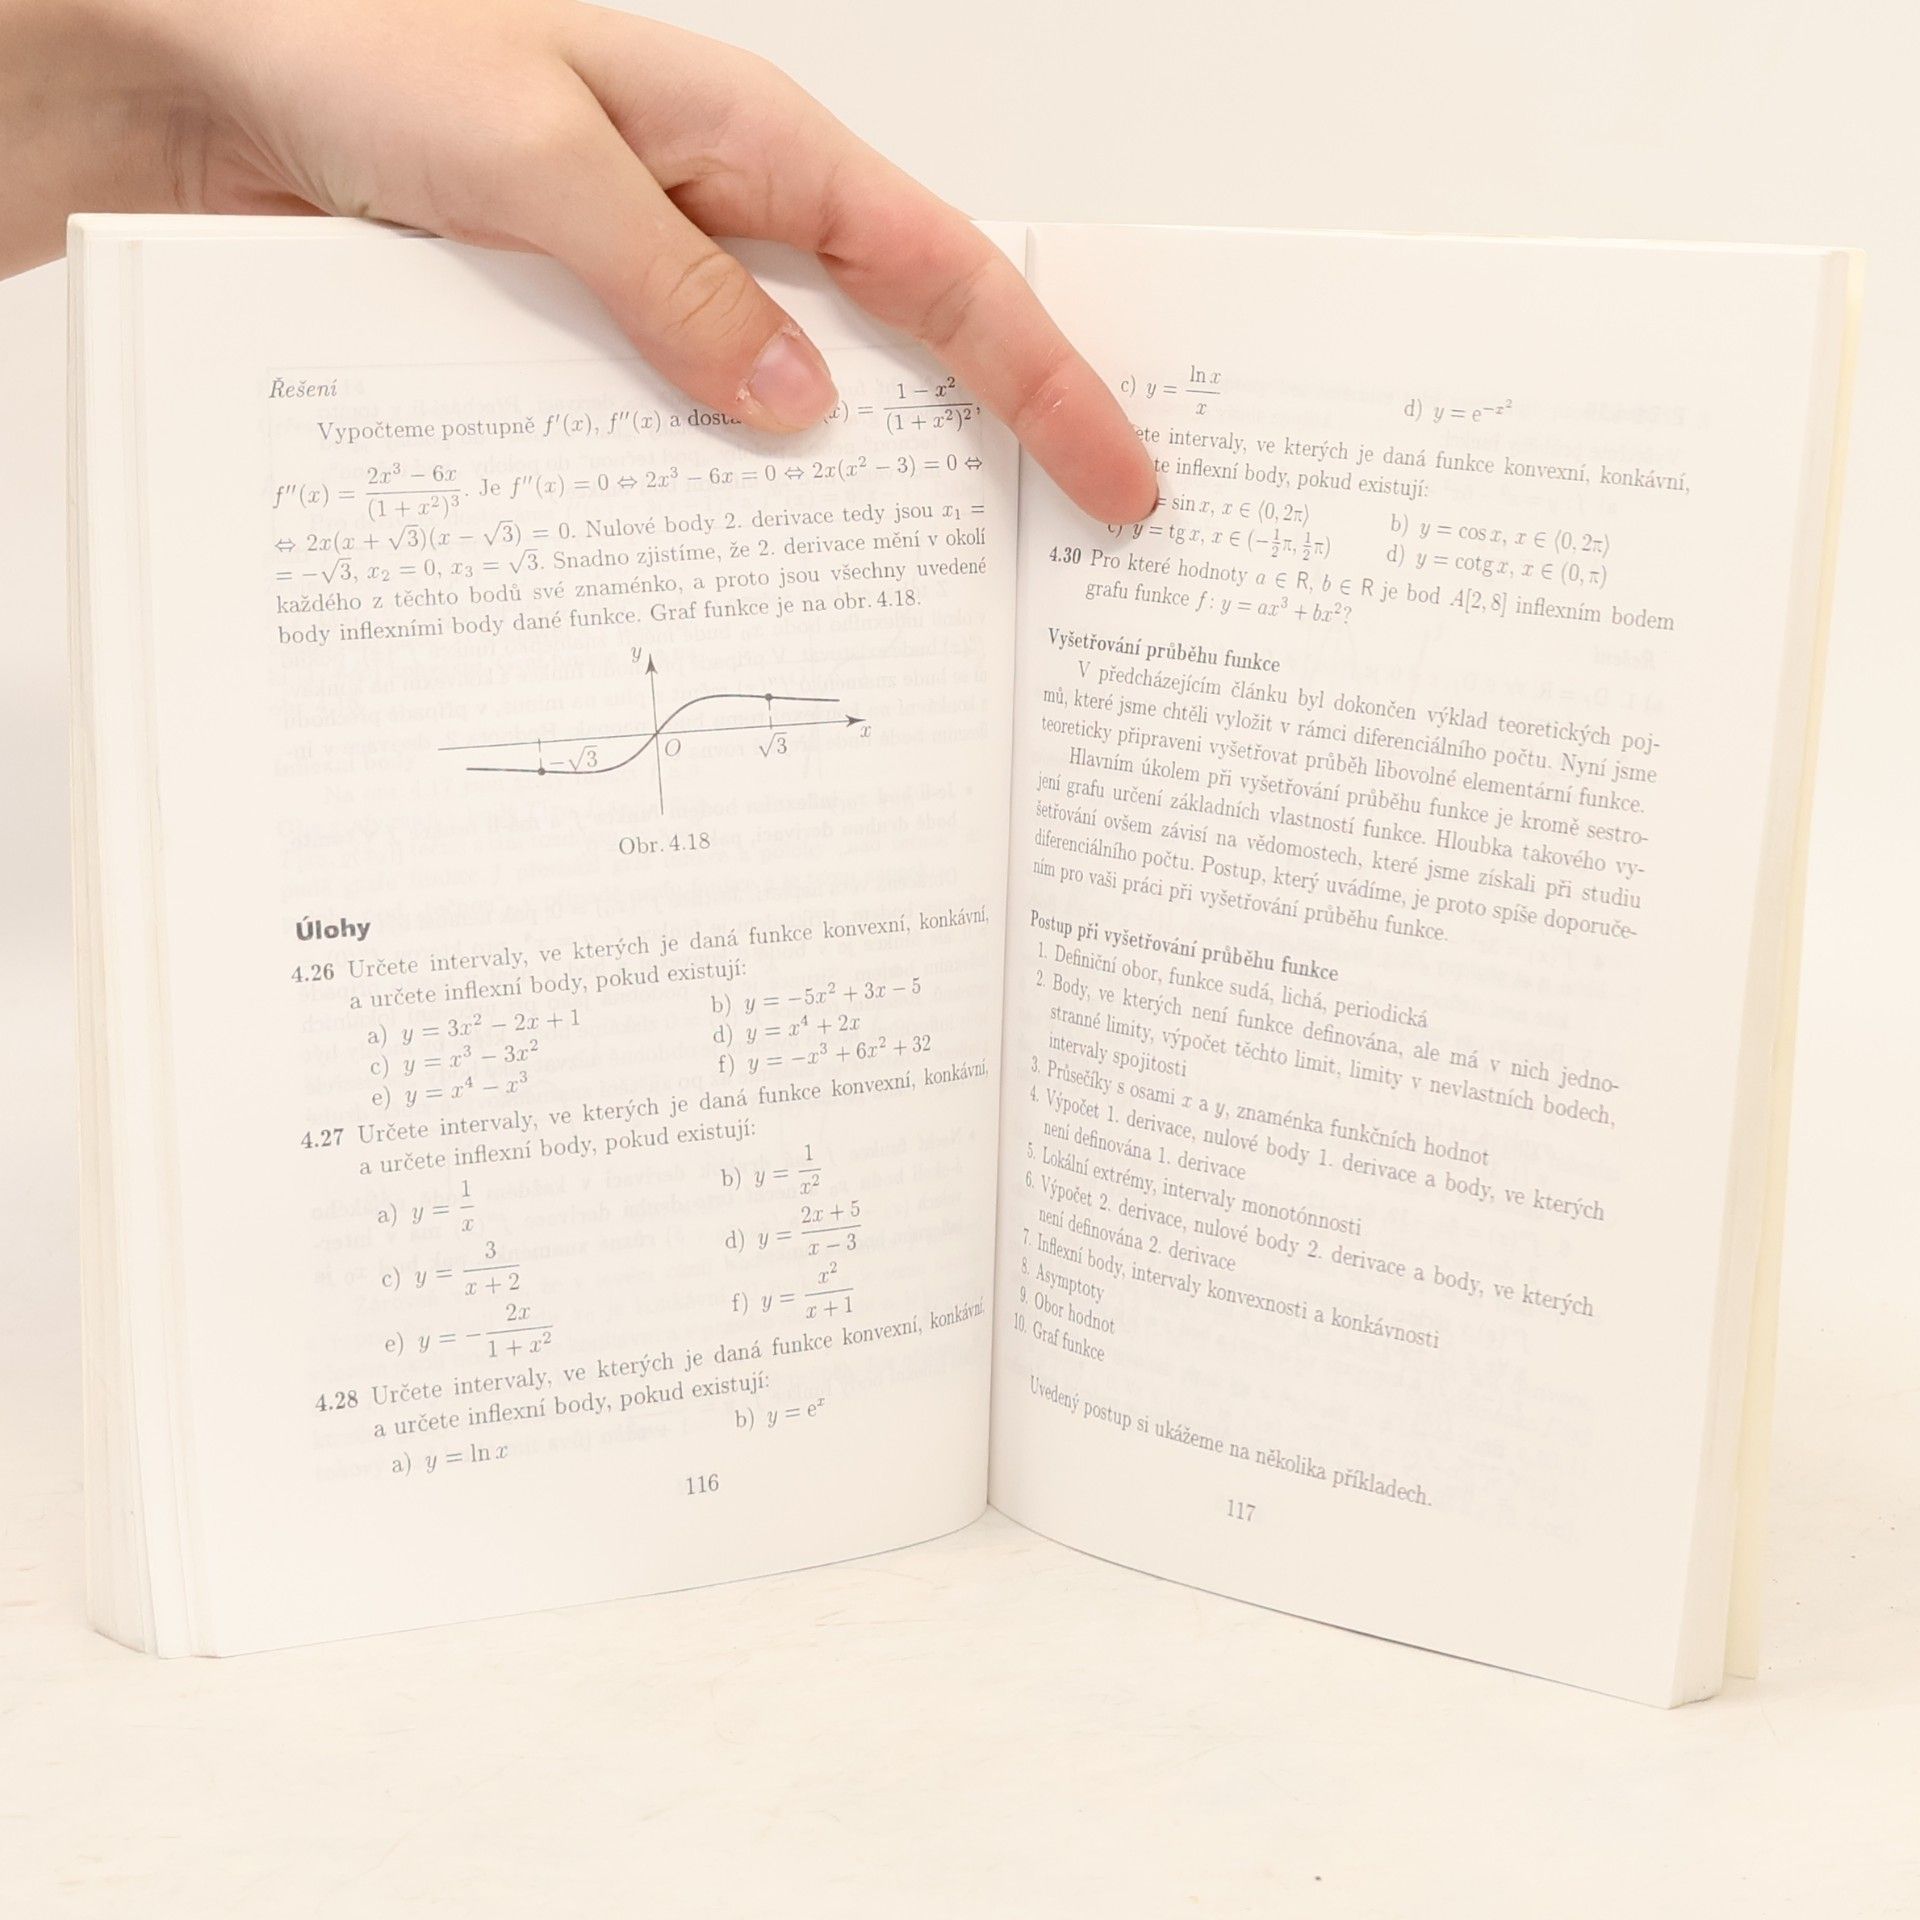 Řešení
Vypočteme postupně f′(x), f″(x) a (x) = (1 − x²)/(1 + x²)²,
f″(x) = (2x³ − 6x)/(1 + x²)³. Je f″(x) = 0 ⇔ 2x³ − 6x = 0 ⇔ 2x(x² − 3) = 0 ⇔
⇔ 2x(x + √3)(x − √3) = 0. Nulové body 2. derivace tedy jsou x₁ =
= −√3, x₂ = 0, x₃ = √3. Snadno zjistíme, že 2. derivace mění v okolí
každého z těchto bodů své znaménko, a proto jsou všechny uvedené
body inflexními body dané funkce. Graf funkce je na obr. 4.18.
y
x
−√3
O
√3
Obr. 4.18
Úlohy
4.26 Určete intervaly, ve kterých je daná funkce konvexní, konkávní,
a určete inflexní body, pokud existují:
a) y = 3x² − 2x + 1 b) y = −5x² + 3x − 5
c) y = x³ − 3x² d) y = x⁴ + 2x
e) y = x⁴ − x³ f) y = −x³ + 6x² + 32
4.27 Určete intervaly, ve kterých je daná funkce konvexní, konkávní,
a určete inflexní body, pokud existují:
a) y = 1/x b) y = 1/x²
c) y = 3/(x + 2) d) y = (2x + 5)/(x − 3)
e) y = −2x/(1 + x²) f) y = x²/(x + 1)
4.28 Určete intervaly, ve kterých je daná funkce konvexní, konkávní,
a určete inflexní body, pokud existují:
a) y = ln x b) y = eˣ
116
c) y = ln x/x d) y = e^(−x²)
intervaly, ve kterých je daná funkce konvexní, konkávní,
inflexní body, pokud existují:
= sin x, x ∈ ⟨0, 2π⟩ b) y = cos x, x ∈ ⟨0, 2π⟩
c) y = tg x, x ∈ (−½π, ½π) d) y = cotg x, x ∈ (0, π)
4.30 Pro které hodnoty a ∈ R, b ∈ R je bod A[2, 8] inflexním bodem
grafu funkce f : y = ax³ + bx²?
Vyšetřování průběhu funkce
V předcházejícím článku byl dokončen výklad teoretických poj-
mů, které jsme chtěli vyložit v rámci diferenciálního počtu. Nyní jsme
teoreticky připraveni vyšetřovat průběh libovolné elementární funkce.
Hlavním úkolem při vyšetřování průběhu funkce je kromě sestro-
jení grafu určení základních vlastností funkce. Hloubka takového vy-
šetřování ovšem závisí na vědomostech, které jsme získali při studiu
diferenciálního počtu. Postup, který uvádíme, je proto spíše doporuče-
ním pro vaši práci při vyšetřování průběhu funkce.
Postup při vyšetřování průběhu funkce
1. Definiční obor, funkce sudá, lichá, periodická
2. Body, ve kterých není funkce definována, ale má v nich jedno-
stranné limity, výpočet těchto limit, limity v nevlastních bodech,
intervaly spojitosti
3. Průsečíky s osami x a y, znaménka funkčních hodnot
4. Výpočet 1. derivace, nulové body 1. derivace a body, ve kterých
není definována 1. derivace
5. Lokální extrémy, intervaly monotónnosti
6. Výpočet 2. derivace, nulové body 2. derivace a body, ve kterých
není definována 2. derivace
7. Inflexní body, intervaly konvexnosti a konkávnosti
8. Asymptoty
9. Obor hodnot
10. Graf funkce
Uvedený postup si ukážeme na několika příkladech.
117